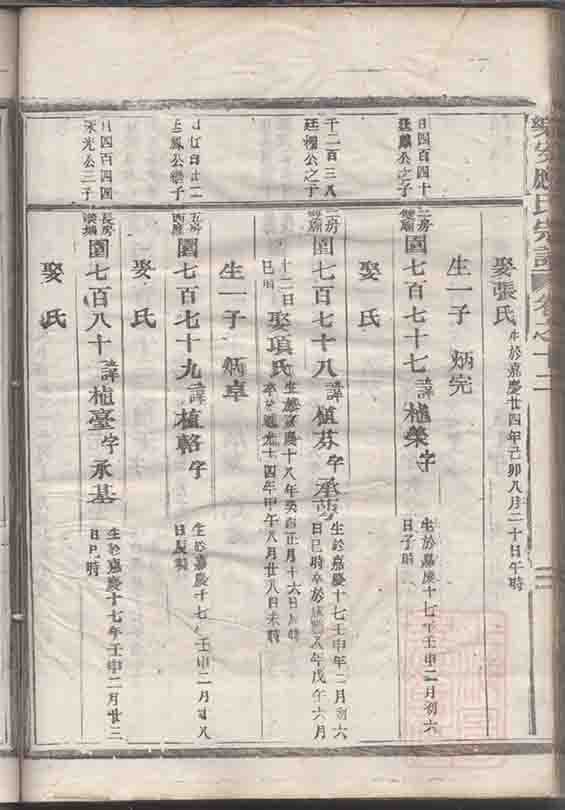 樂安應氏宗譜 卷之十二
娶張氏 生於嘉慶廿四年己卯八月二十日午時
生一子 炳完
日四百四十
廷麟公之子
二房
園七百七十七 諱植榮 字
生於嘉慶十七年壬申二月初六
日子時
娶 氏
千二百三八
廷櫻公之子
二房
園七百七十八 諱植芬 字承
生於嘉慶十七壬申年二月初六
日巳時卒於咸豐八年戊午六月
十二日
巳時
娶項氏
生於嘉慶十八年癸酉正月十六日 時
卒於道光十四年甲午八月廿八日未時
生一子 炳卓
上 公 子
五房
西應
園七百七十九 諱植輅 字
生於嘉慶十七 壬申二月廿八
日辰時
娶 氏
日四百四四
永光公三子
長房
園七百八十 諱植臺 字承基
生於嘉慶十七年壬申二月廿三
日巳時
娶 氏